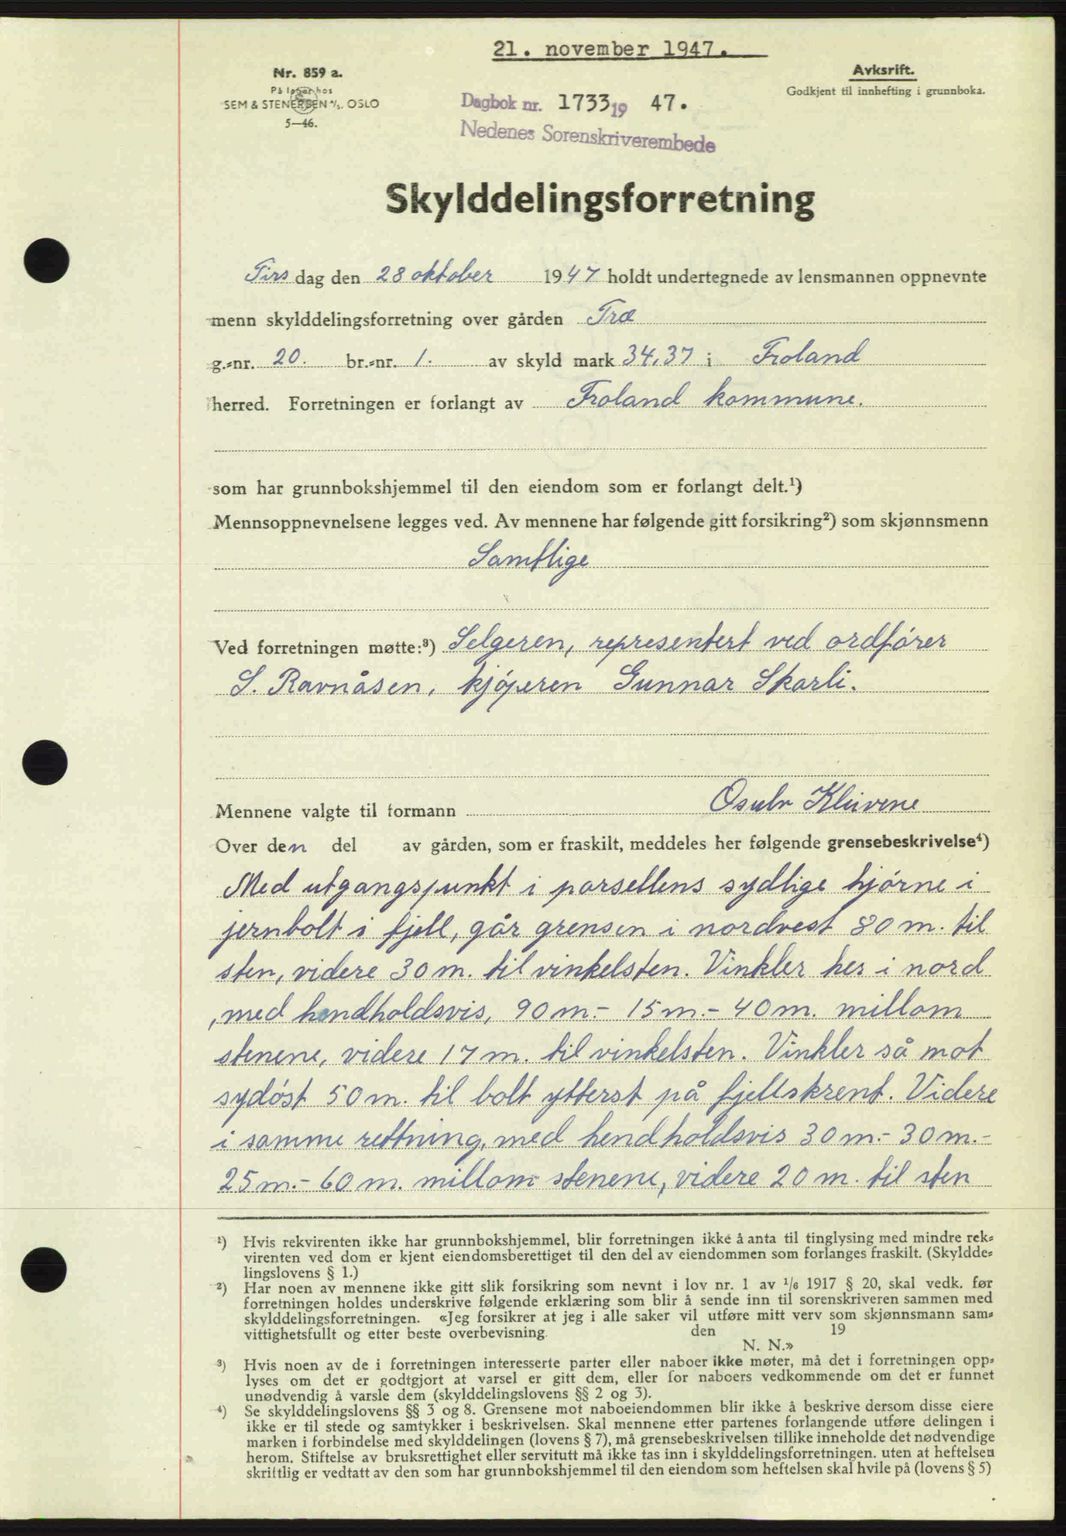 21. november 1947.
Nr. 859 a.
På lager hos
SEM & STENERSEN A/S. OSLO
5—46.
Avksrift.
Godkjent til innhefting i grunnboka.
Dagbok nr. 1733 19 47.
Nedenes Sorenskriverembede
Skylddelingsforretning
Tirsdag den 28 oktober 1947 holdt undertegnede av lensmannen oppnevnte
menn skylddelingsforretning over gården Træ
g.-nr. 20. br.-nr. 1. av skyld mark 34,37 i Froland
herred. Forretningen er forlangt av Froland kommune.
som har grunnbokshjemmel til den eiendom som er forlangt delt.¹)
Mennsoppnevnelsene legges ved. Av mennene har følgende gitt forsikring²) som skjønnsmenn
Samtlige
Ved forretningen møtte:³) Selgeren, representert ved ordfører
S. Ravnåsen, kjøperen Gunnar Skarli.
Mennene valgte til formann Osulv Klüvene
Over den del av gården, som er fraskilt, meddeles her følgende grensebeskrivelse⁴)
Med utgangspunkt i parsellens sydlige hjørne i
jernbolt i fjell, går grensen i nordvest 80 m. til
sten, videre 30 m. til vinkelsten. Vinkler her i nord
, med hendholdsvis, 90 m.- 15 m.- 40 m. millom
stenene, videre 17 m. til vinkelsten. Vinkler så mot
sydøst 50 m. til bolt ytterst på fjellskrent. Videre
i samme rettning, med hendholdsvis 30 m.- 30 m.-
25 m.- 60 m. millom stenene, videre 20 m. til sten
¹) Hvis rekvirenten ikke har grunnbokshjemmel, blir forretningen ikke å anta til tinglysing med mindre rek-
virenten ved dom er kjent eiendomsberettiget til den del av eiendommen som forlanges fraskilt. (Skyldde-
lingslovens § 1.)
²) Har noen av mennene ikke gitt slik forsikring som nevnt i lov nr. 1 av ¹/₆ 1917 § 20, skal vedk. før
forretningen holdes underskrive følgende erklæring som blir å sende inn til sorenskriveren sammen med
skylddelingsforretningen. «Jeg forsikrer at jeg i alle saker vil utføre mitt verv som skjønnsmann sam-
vittighetsfullt og etter beste overbevisning. den 19
N. N.»
³) Hvis noen av de i forretningen interesserte parter eller naboer ikke møter, må det i forretningen opp-
lyses om det er godtgjort at varsel er gitt dem, eller for naboers vedkommende om det er funnet
unødvendig å varsle dem (skylddelingslovens §§ 2 og 3).
⁴) Se skylddelingslovens §§ 3 og 8. Grensene mot naboeiendommen blir ikke å beskrive dersom disse eiere
ikke er til stede og samtykker i beskrivelsen. Skal mennene etter partenes forlangende utføre delingen i
marken i forbindelse med skylddelingen (lovens § 7), må grensebeskrivelsen tillike inneholde det nødvendige
herom. Stiftelse av bruksrettighet eller servitutt må ikke tas inn i skylddelingsforretningen. uten at heftelsen
skriftlig er vedtatt av den som har grunnbokshjemmel til den eiendom som heftelsen skal hvile på (lovens § 5)